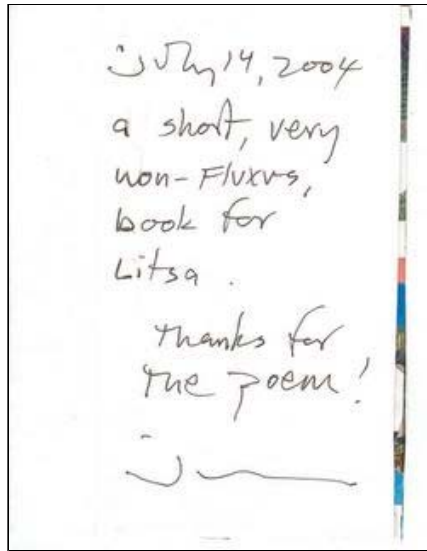 July 14, 2004
a short, very
non-Fluxus,
book for
Litsa.
Thanks for
the poem!